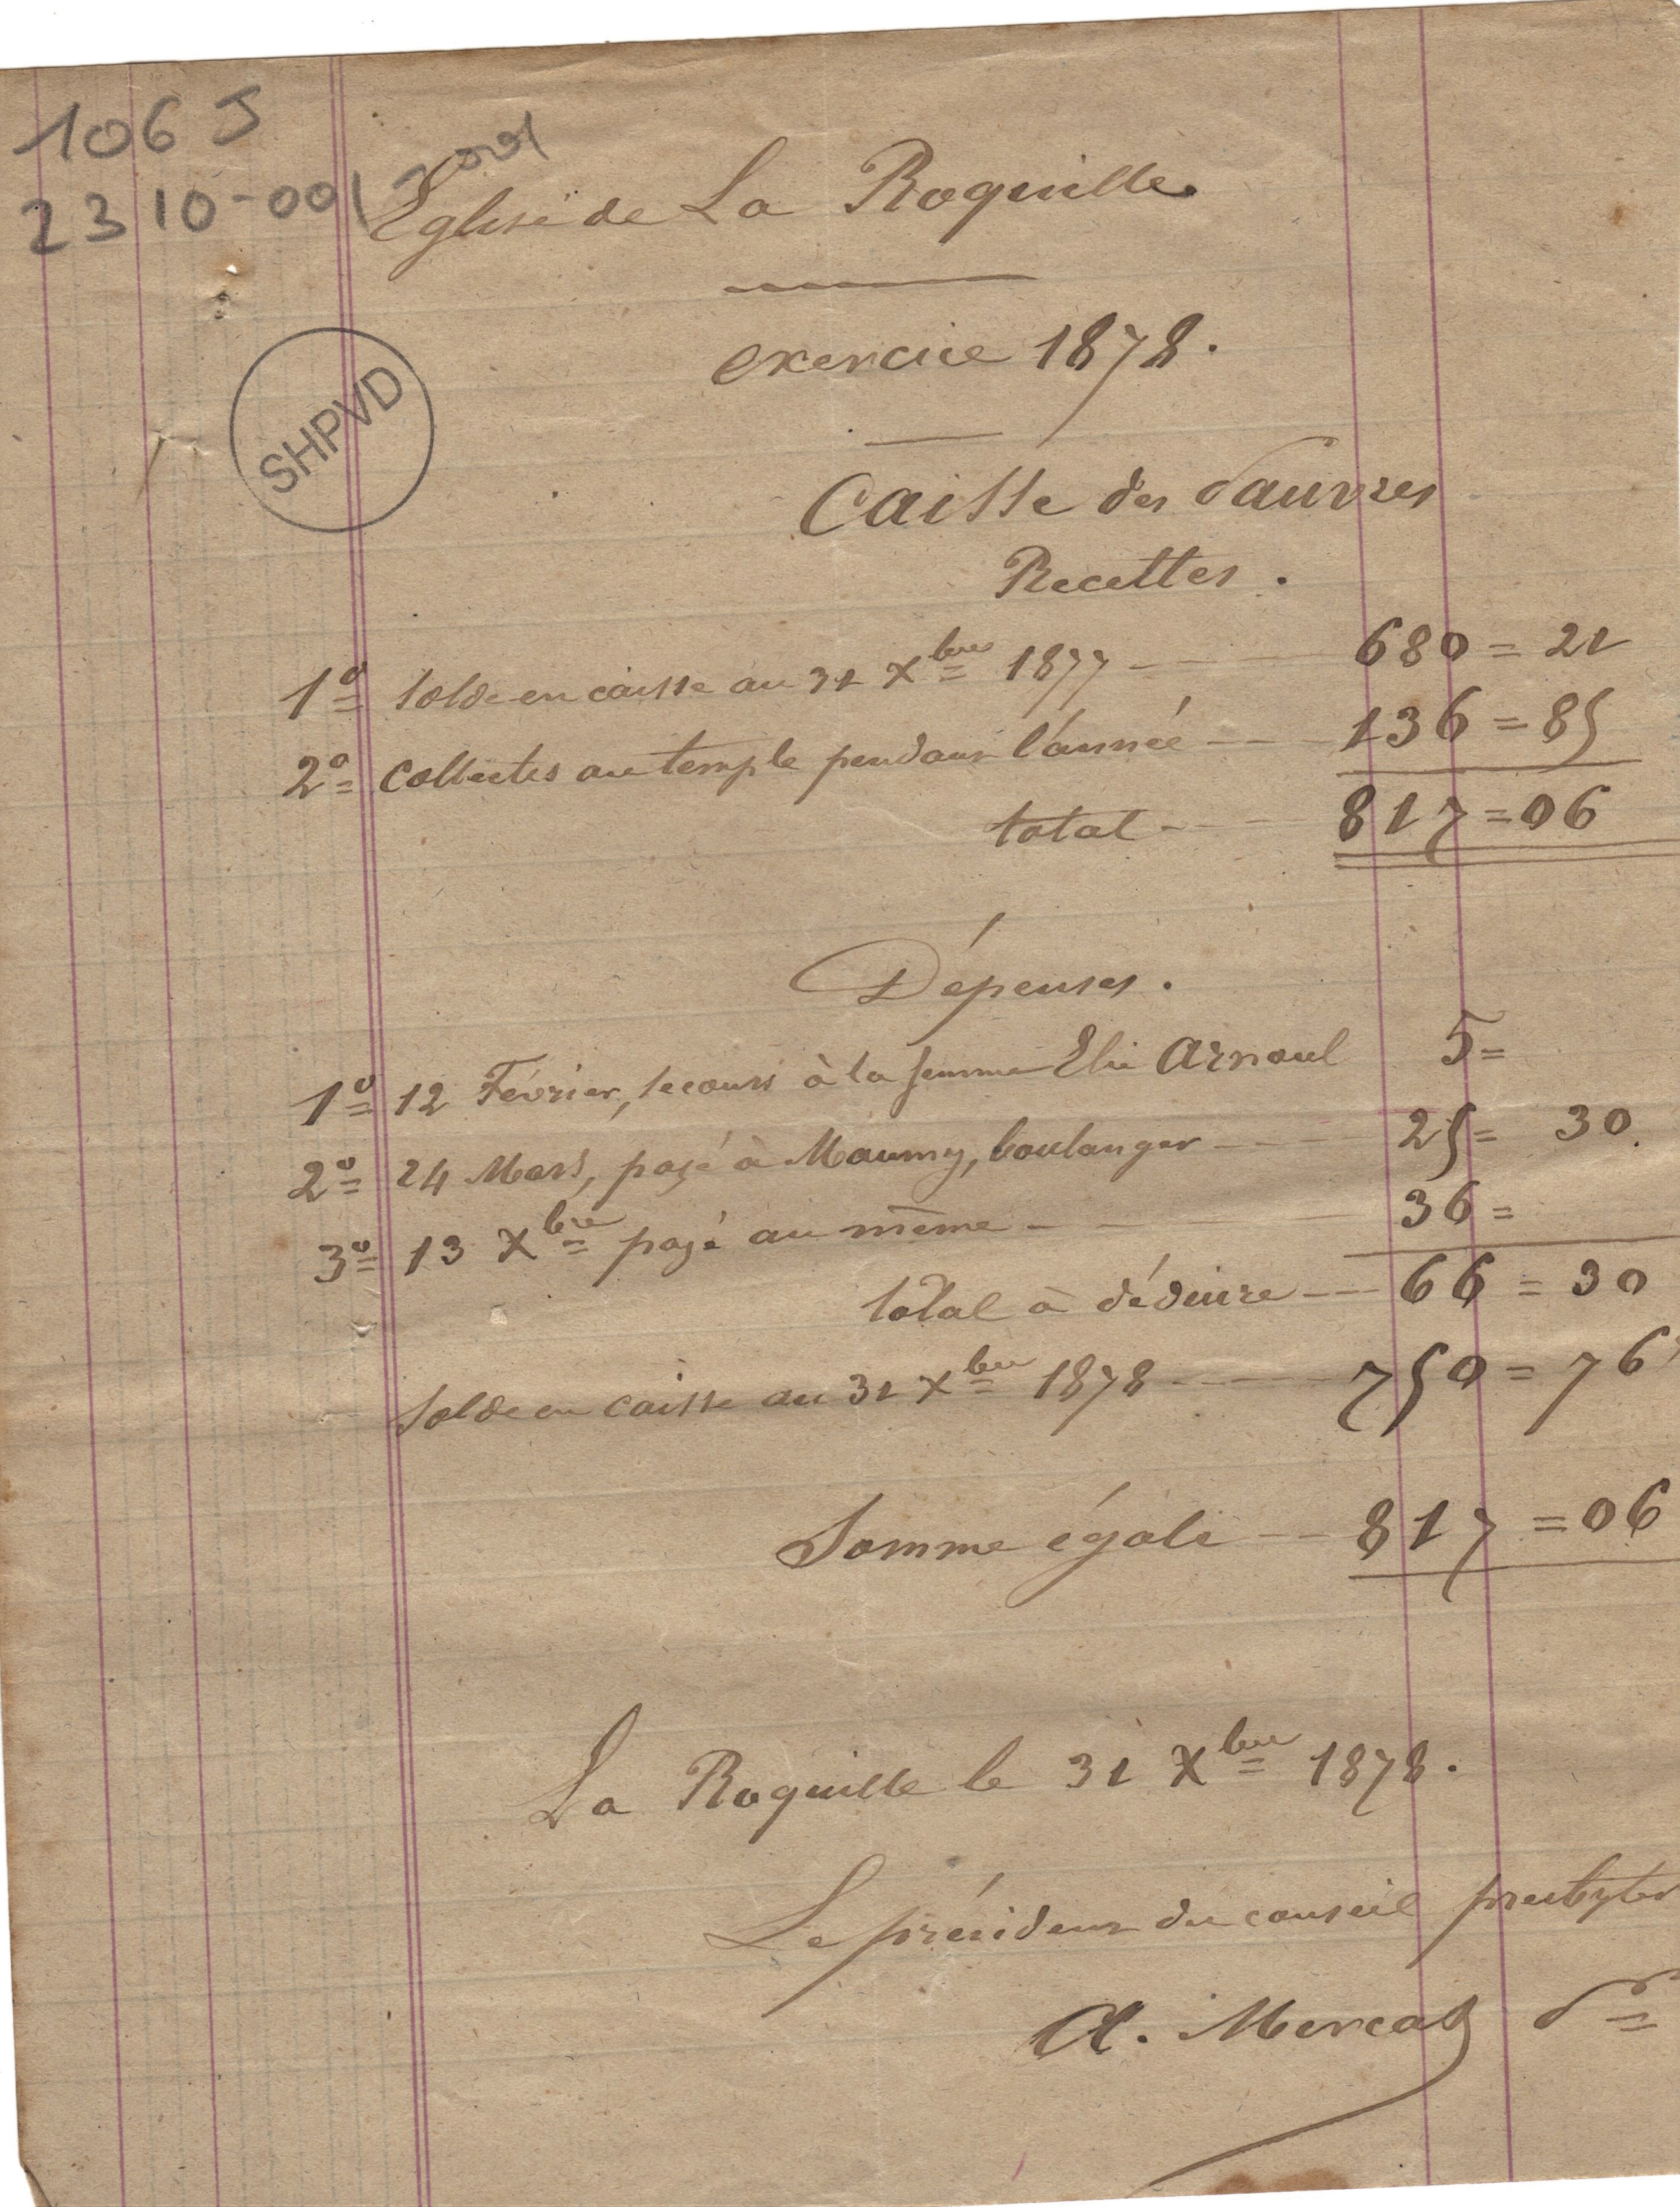 106 J
2310-001
Eglise de La Roquille
exercice 1878.
SHPVD
Caisse des Pauvres
Recettes.
1º solde en caisse au 31 Xbre 1877 - 680 = 21
2º Collectes au temple pendant l'année - 136 = 85
total - 817 = 06
Dépenses.
1º 12 Février, secours à la femme Elie Arnoul 5 =
2º 24 Mars, payé à Maumy, boulanger - 25 = 30.
3º 13 Xbre payé au même - 36 =
total à déduire - 66 = 30
Solde en caisse au 31 Xbre 1878 - 750 = 76
Somme égale - 817 = 06
La Roquille le 31 Xbre 1878.
Le président du conseil presbyter
A. Mercat